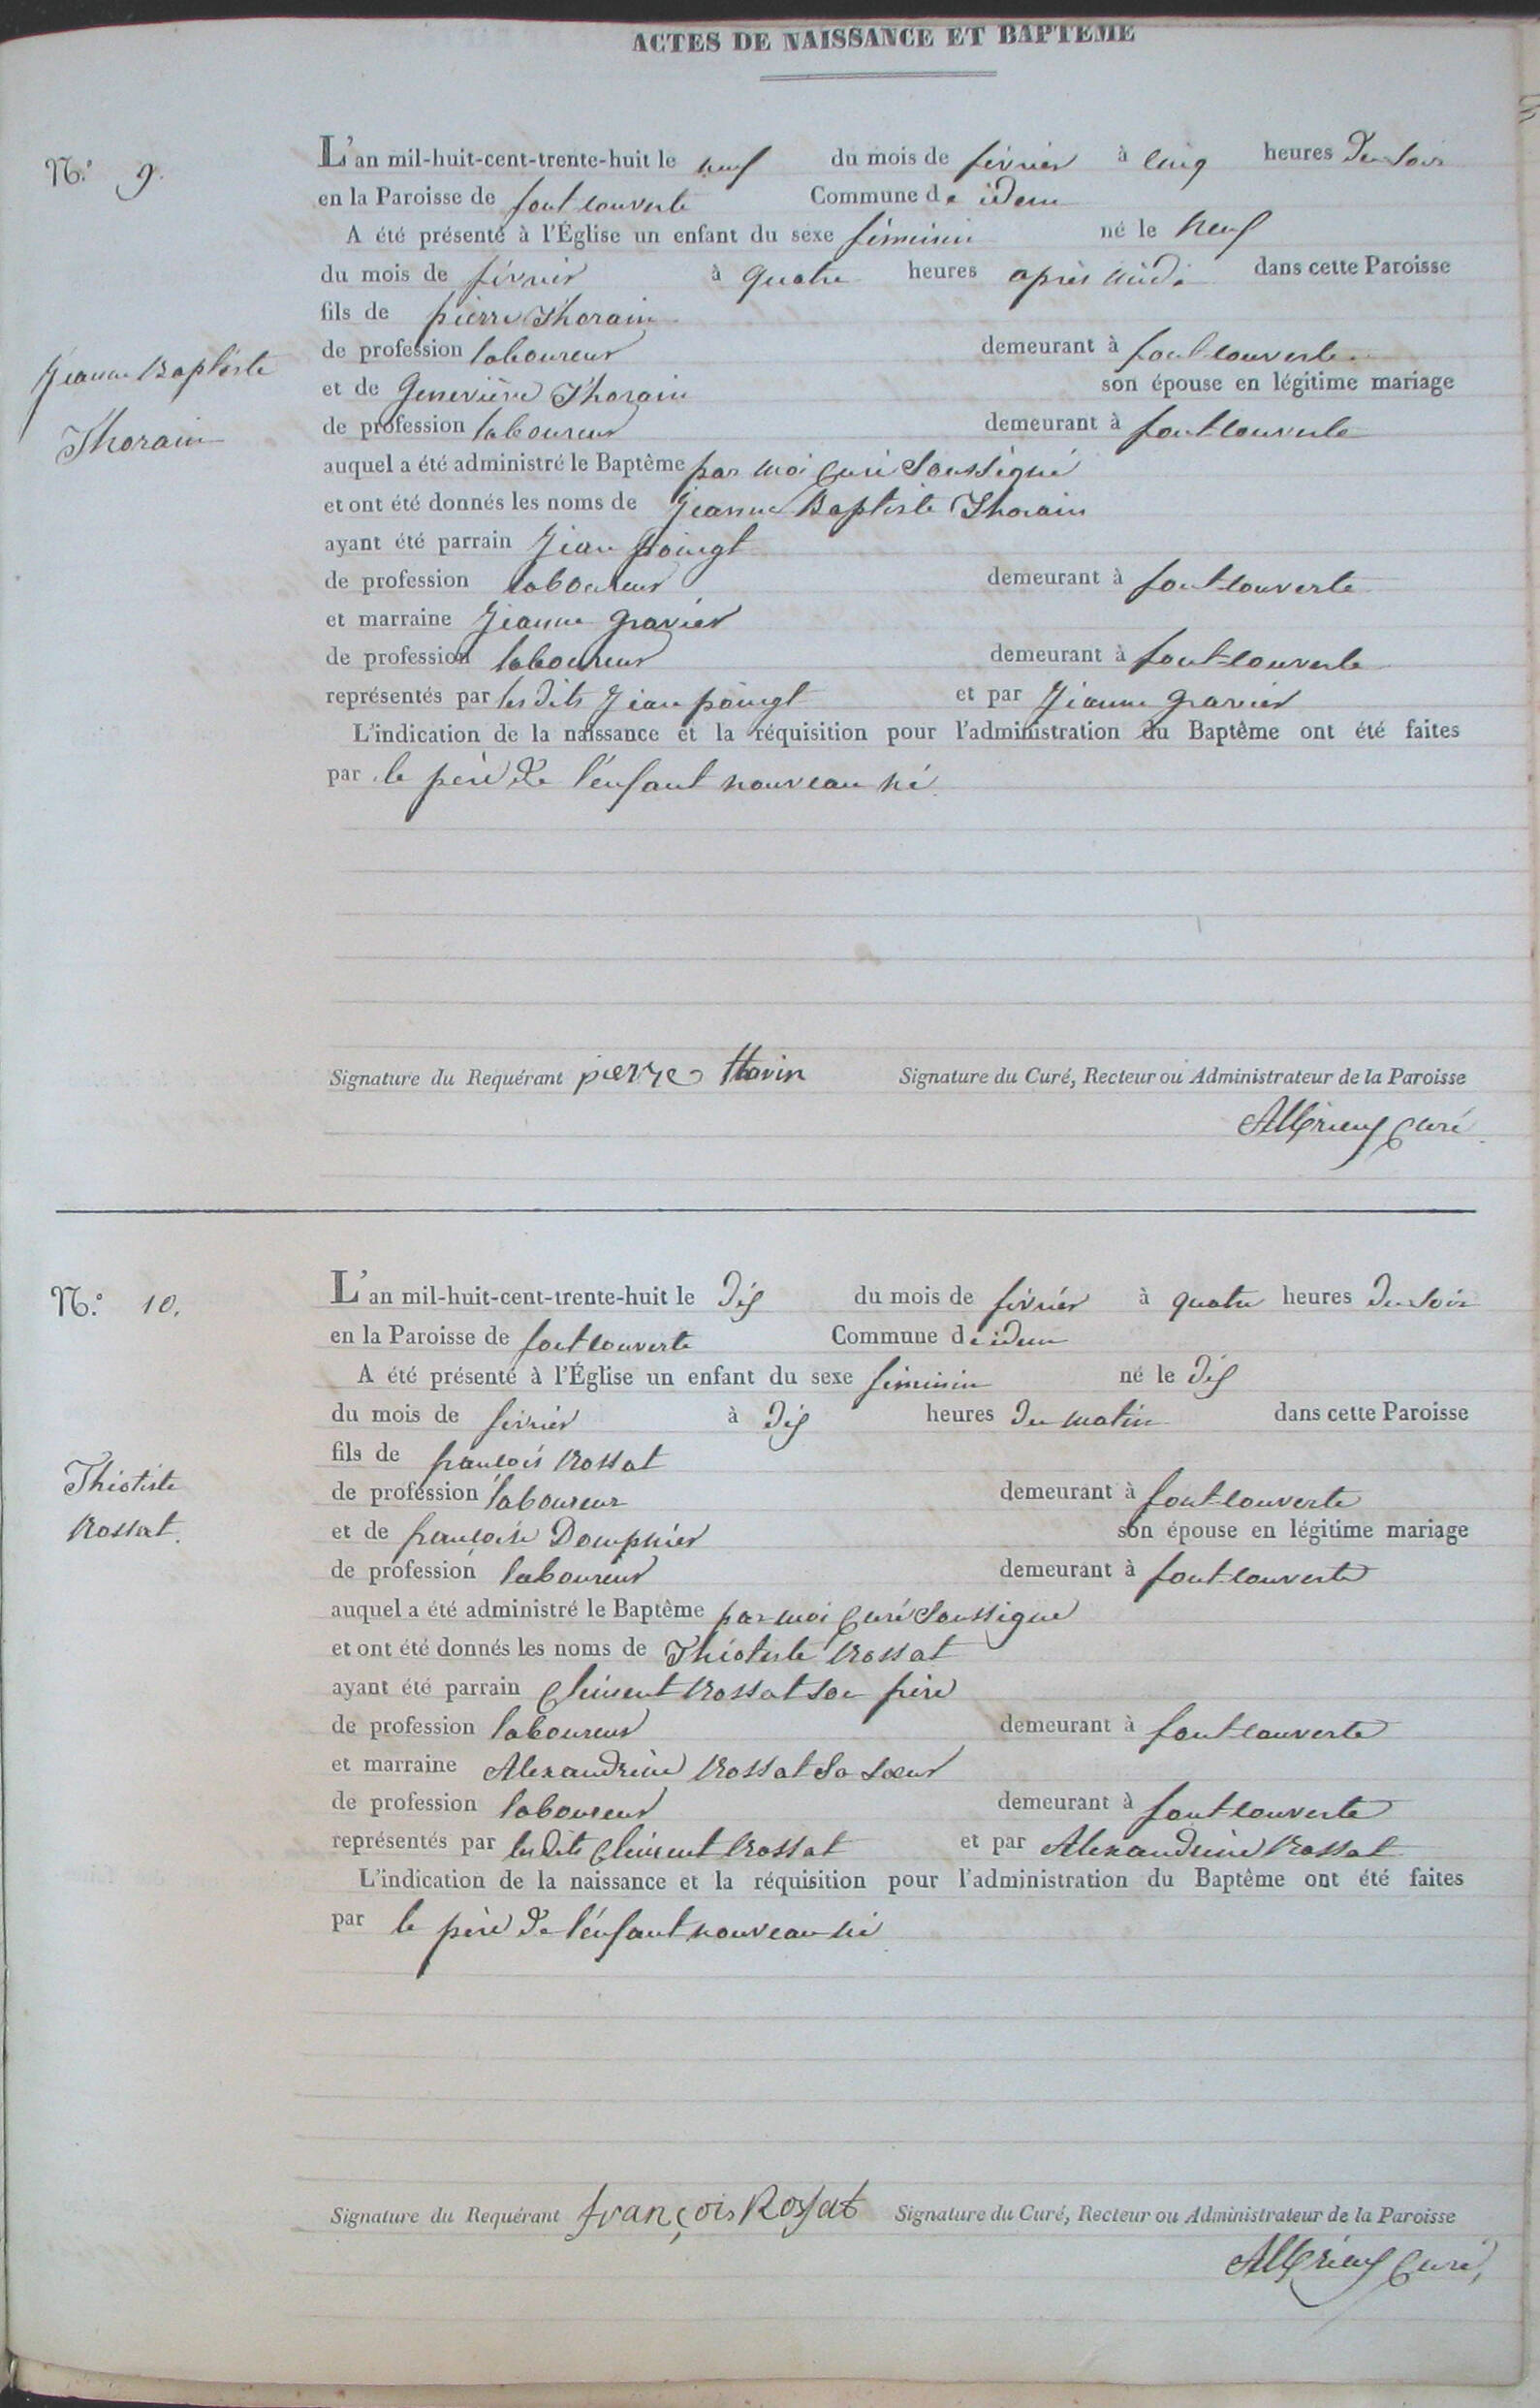 ACTES DE NAISSANCE ET BAPTEME
N.° 9.
L'an mil-huit-cent-trente-huit le neuf du mois de février à cinq heures du soir
en la Paroisse de fontcouverte Commune de idem
A été présenté à l'Église un enfant du sexe féminin né le neuf
du mois de février à quatre heures après midi dans cette Paroisse
fils de pierre Thorain
de profession laboureur demeurant à fontcouverte
Jeanne Baptiste
et de Geneviève Thorain son épouse en légitime mariage
Thorain
de profession laboureur demeurant à fontcouverte
auquel a été administré le Baptême par moi Curé soussigné
et ont été donnés les noms de Jeanne Baptiste Thorain
ayant été parrain Jean poingt
de profession laboureur demeurant à fontcouverte
et marraine Jeanne gravier
de profession laboureur demeurant à fontcouverte
représentés par les dits Jean poingt et par Jeanne gravier
L'indication de la naissance et la réquisition pour l'administration du Baptême ont été faites
par le père de l'enfant nouveau né.
Signature du Requérant pierre thorin Signature du Curé, Recteur ou Administrateur de la Paroisse
Curé
N.° 10.
L'an mil-huit-cent-trente-huit le dix du mois de février à quatre heures du soir
en la Paroisse de fontcouverte Commune de idem
A été présenté à l'Église un enfant du sexe féminin né le dix
du mois de février à dix heures du matin dans cette Paroisse
fils de françois Rossat
Théotiste
de profession laboureur demeurant à fontcouverte
Rossat.
et de françoise Domphier son épouse en légitime mariage
de profession laboureur demeurant à fontcouverte
auquel a été administré le Baptême par moi Curé soussigné
et ont été donnés les noms de Théotiste Rossat
ayant été parrain Clément Rossat son frère
de profession laboureur demeurant à fontcouverte
et marraine Alexandrine Rossat sa soeur
de profession laboureur demeurant à fontcouverte
représentés par les dits Clément Rossat et par Alexandrine Rossat
L'indication de la naissance et la réquisition pour l'administration du Baptême ont été faites
par le père de l'enfant nouveau né
Signature du Requérant françois Rossat Signature du Curé, Recteur ou Administrateur de la Paroisse
Curé,